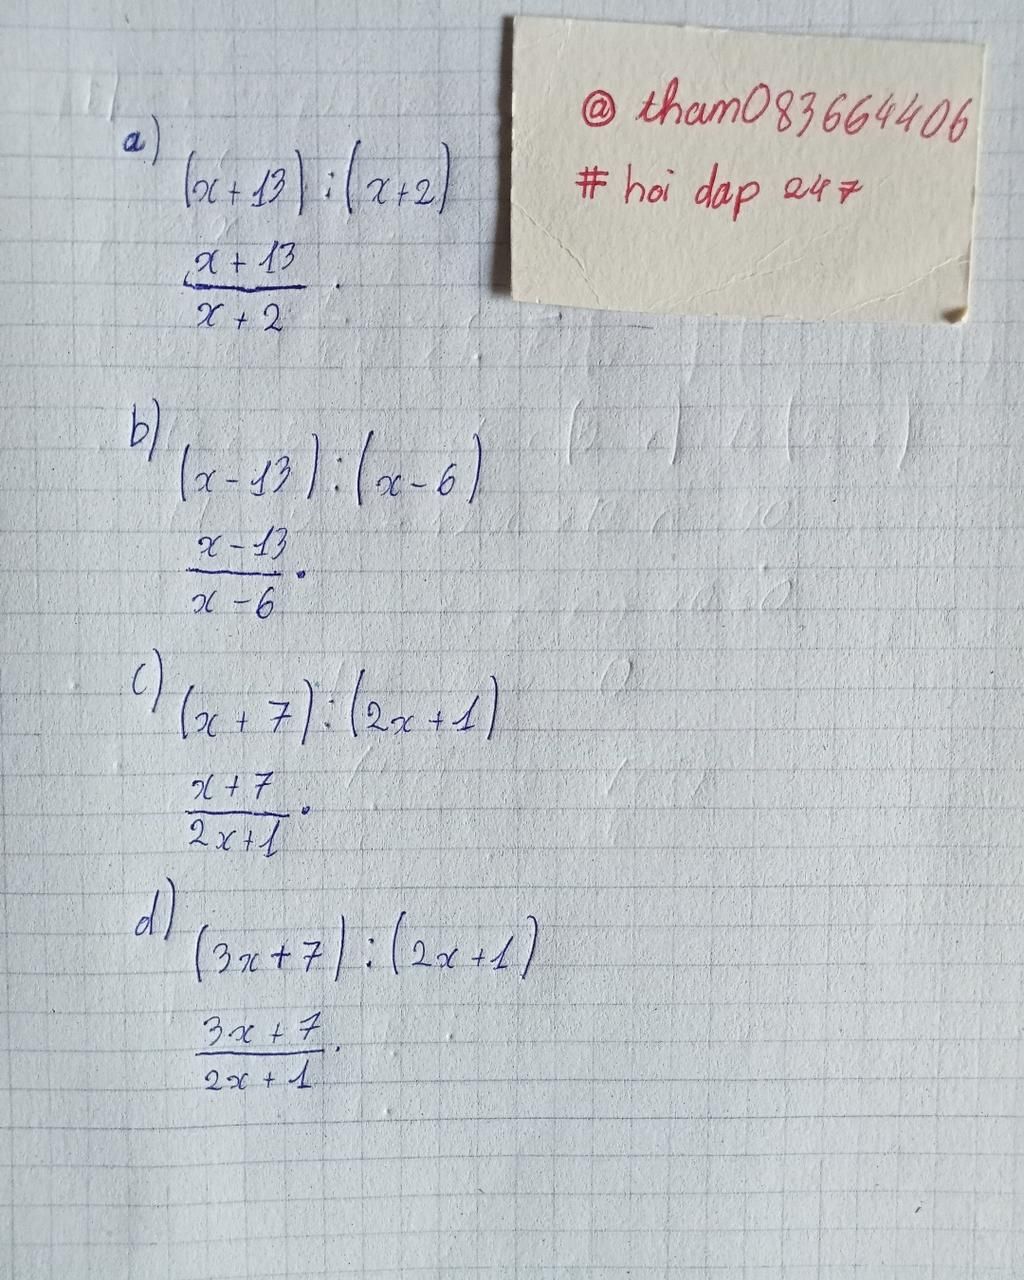 @ tham083664406
# hoi dap 247
a)
(x+13):(x+2)
x+13
x+2
b)
(x-13):(x-6)
x-13
x-6
c)
(x+7):(2x+1)
x+7
2x+1
d)
(3x+7):(2x+1)
3x+7
2x+1